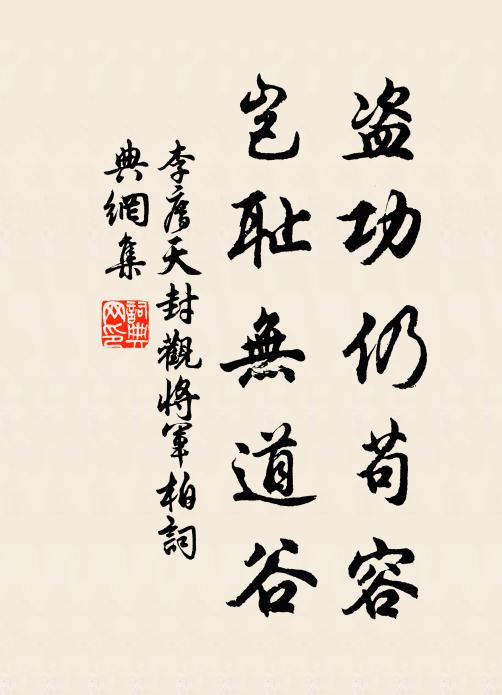 盗功仍苟容
豈耻無道谷
李廌天封觀將軍柏詞
典網集
詞典
网印